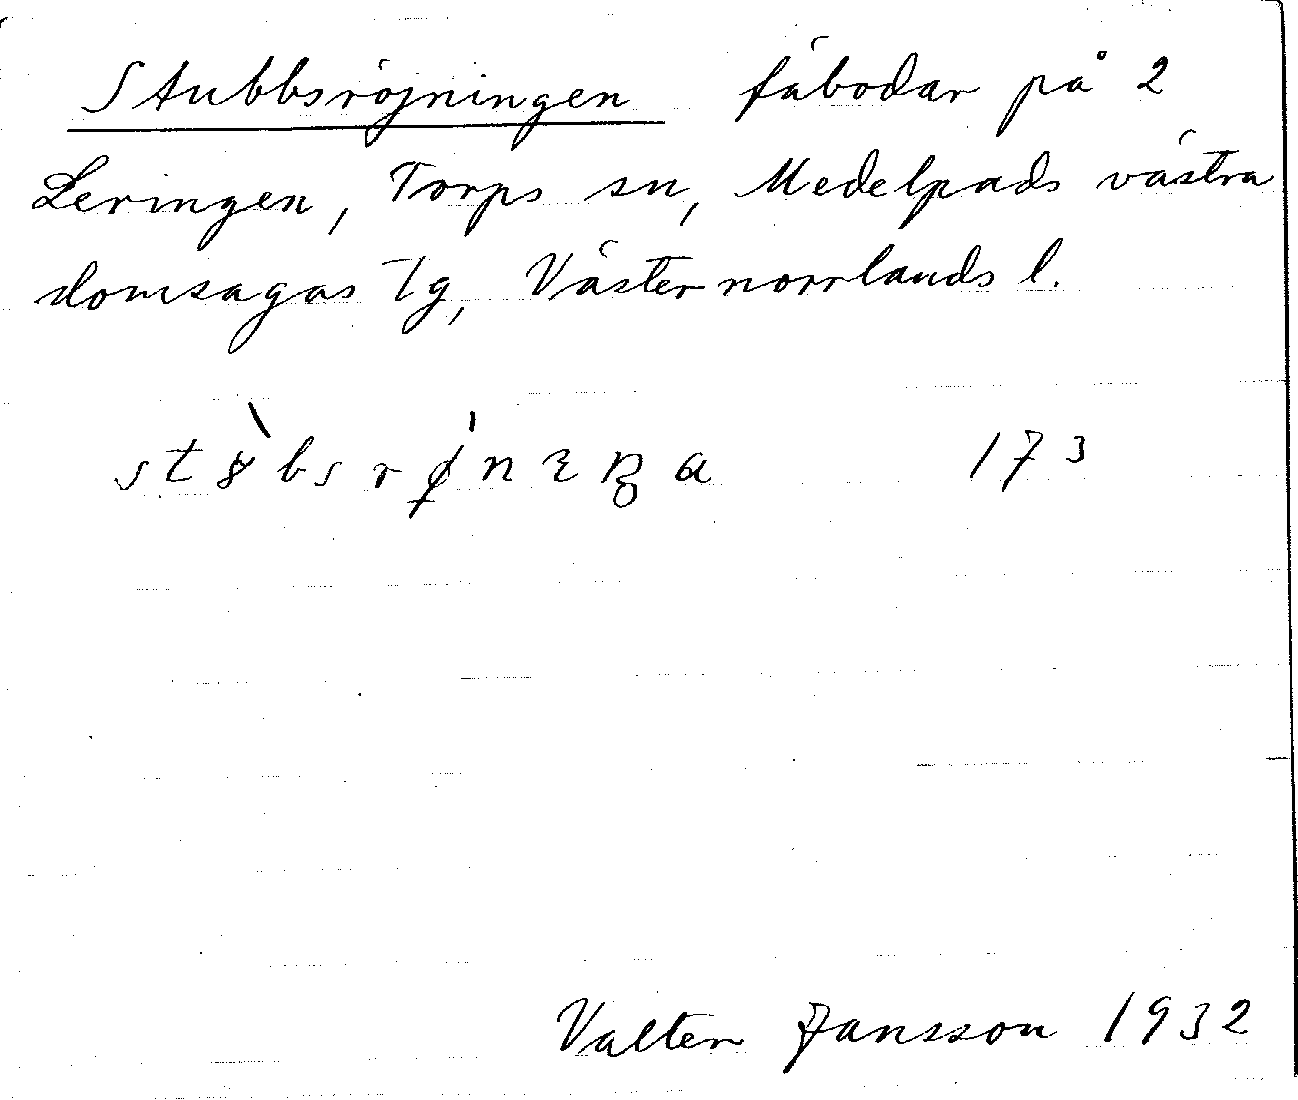 Stubbsröjningen fäbodar på 2
Leringen, Torps sn, Medelpads västra
domsagas Tg, Västernorrlands l.
173
Valter Jansson 1932